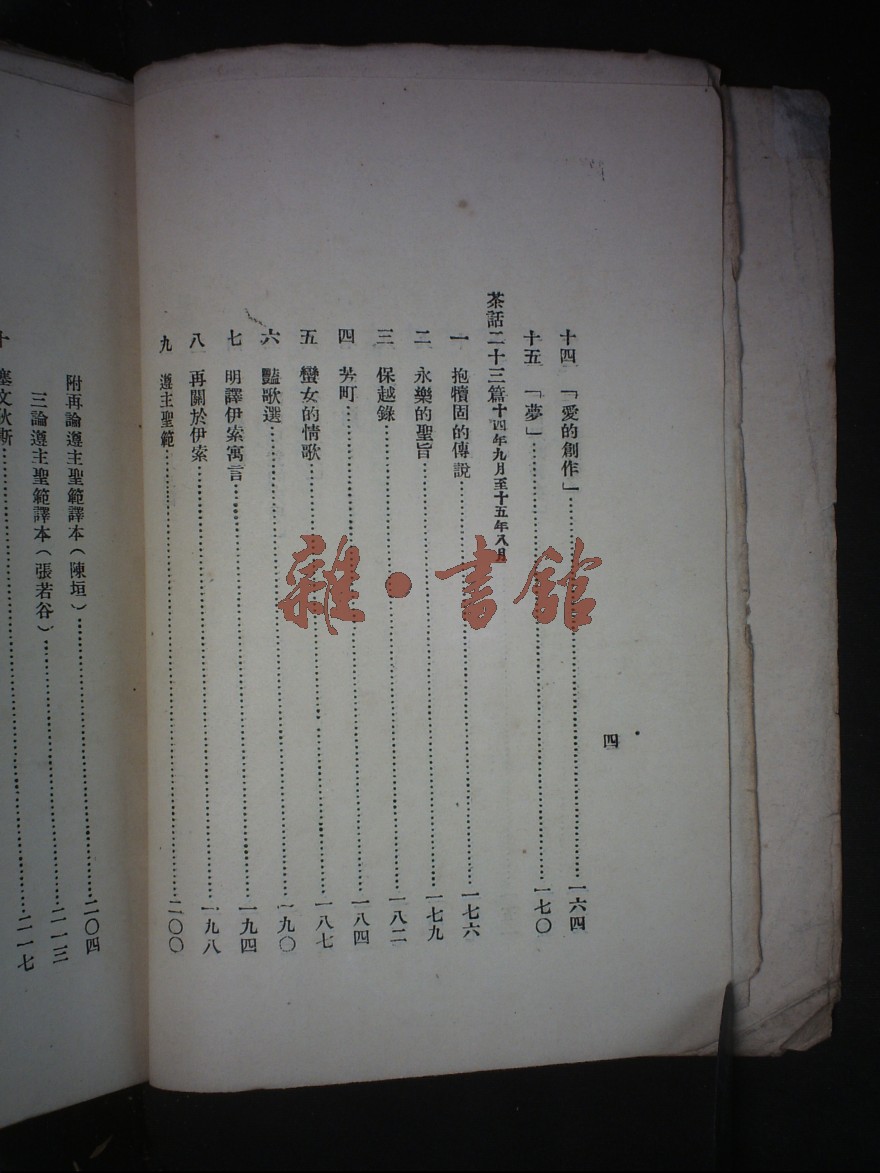 四
十四 「愛的創作」……一六四
十五 「夢」……一七〇
茶話二十三篇 十四年九月至十五年八月
一 抱犢固的傳說……一七六
二 永樂的聖旨……一七九
三 保越錄……一八二
四 芳町……一八四
五 蠻女的情歌……一八七
六 豔歌選……一九〇
七 明譯伊索寓言……一九四
八 再關於伊索……一九八
九 遵主聖範……二〇〇
附再論遵主聖範譯本(陳垣)……二〇四
三論遵主聖範譯本(張若谷)……二一三
十 塞文狄斯……二一七
雜·書館